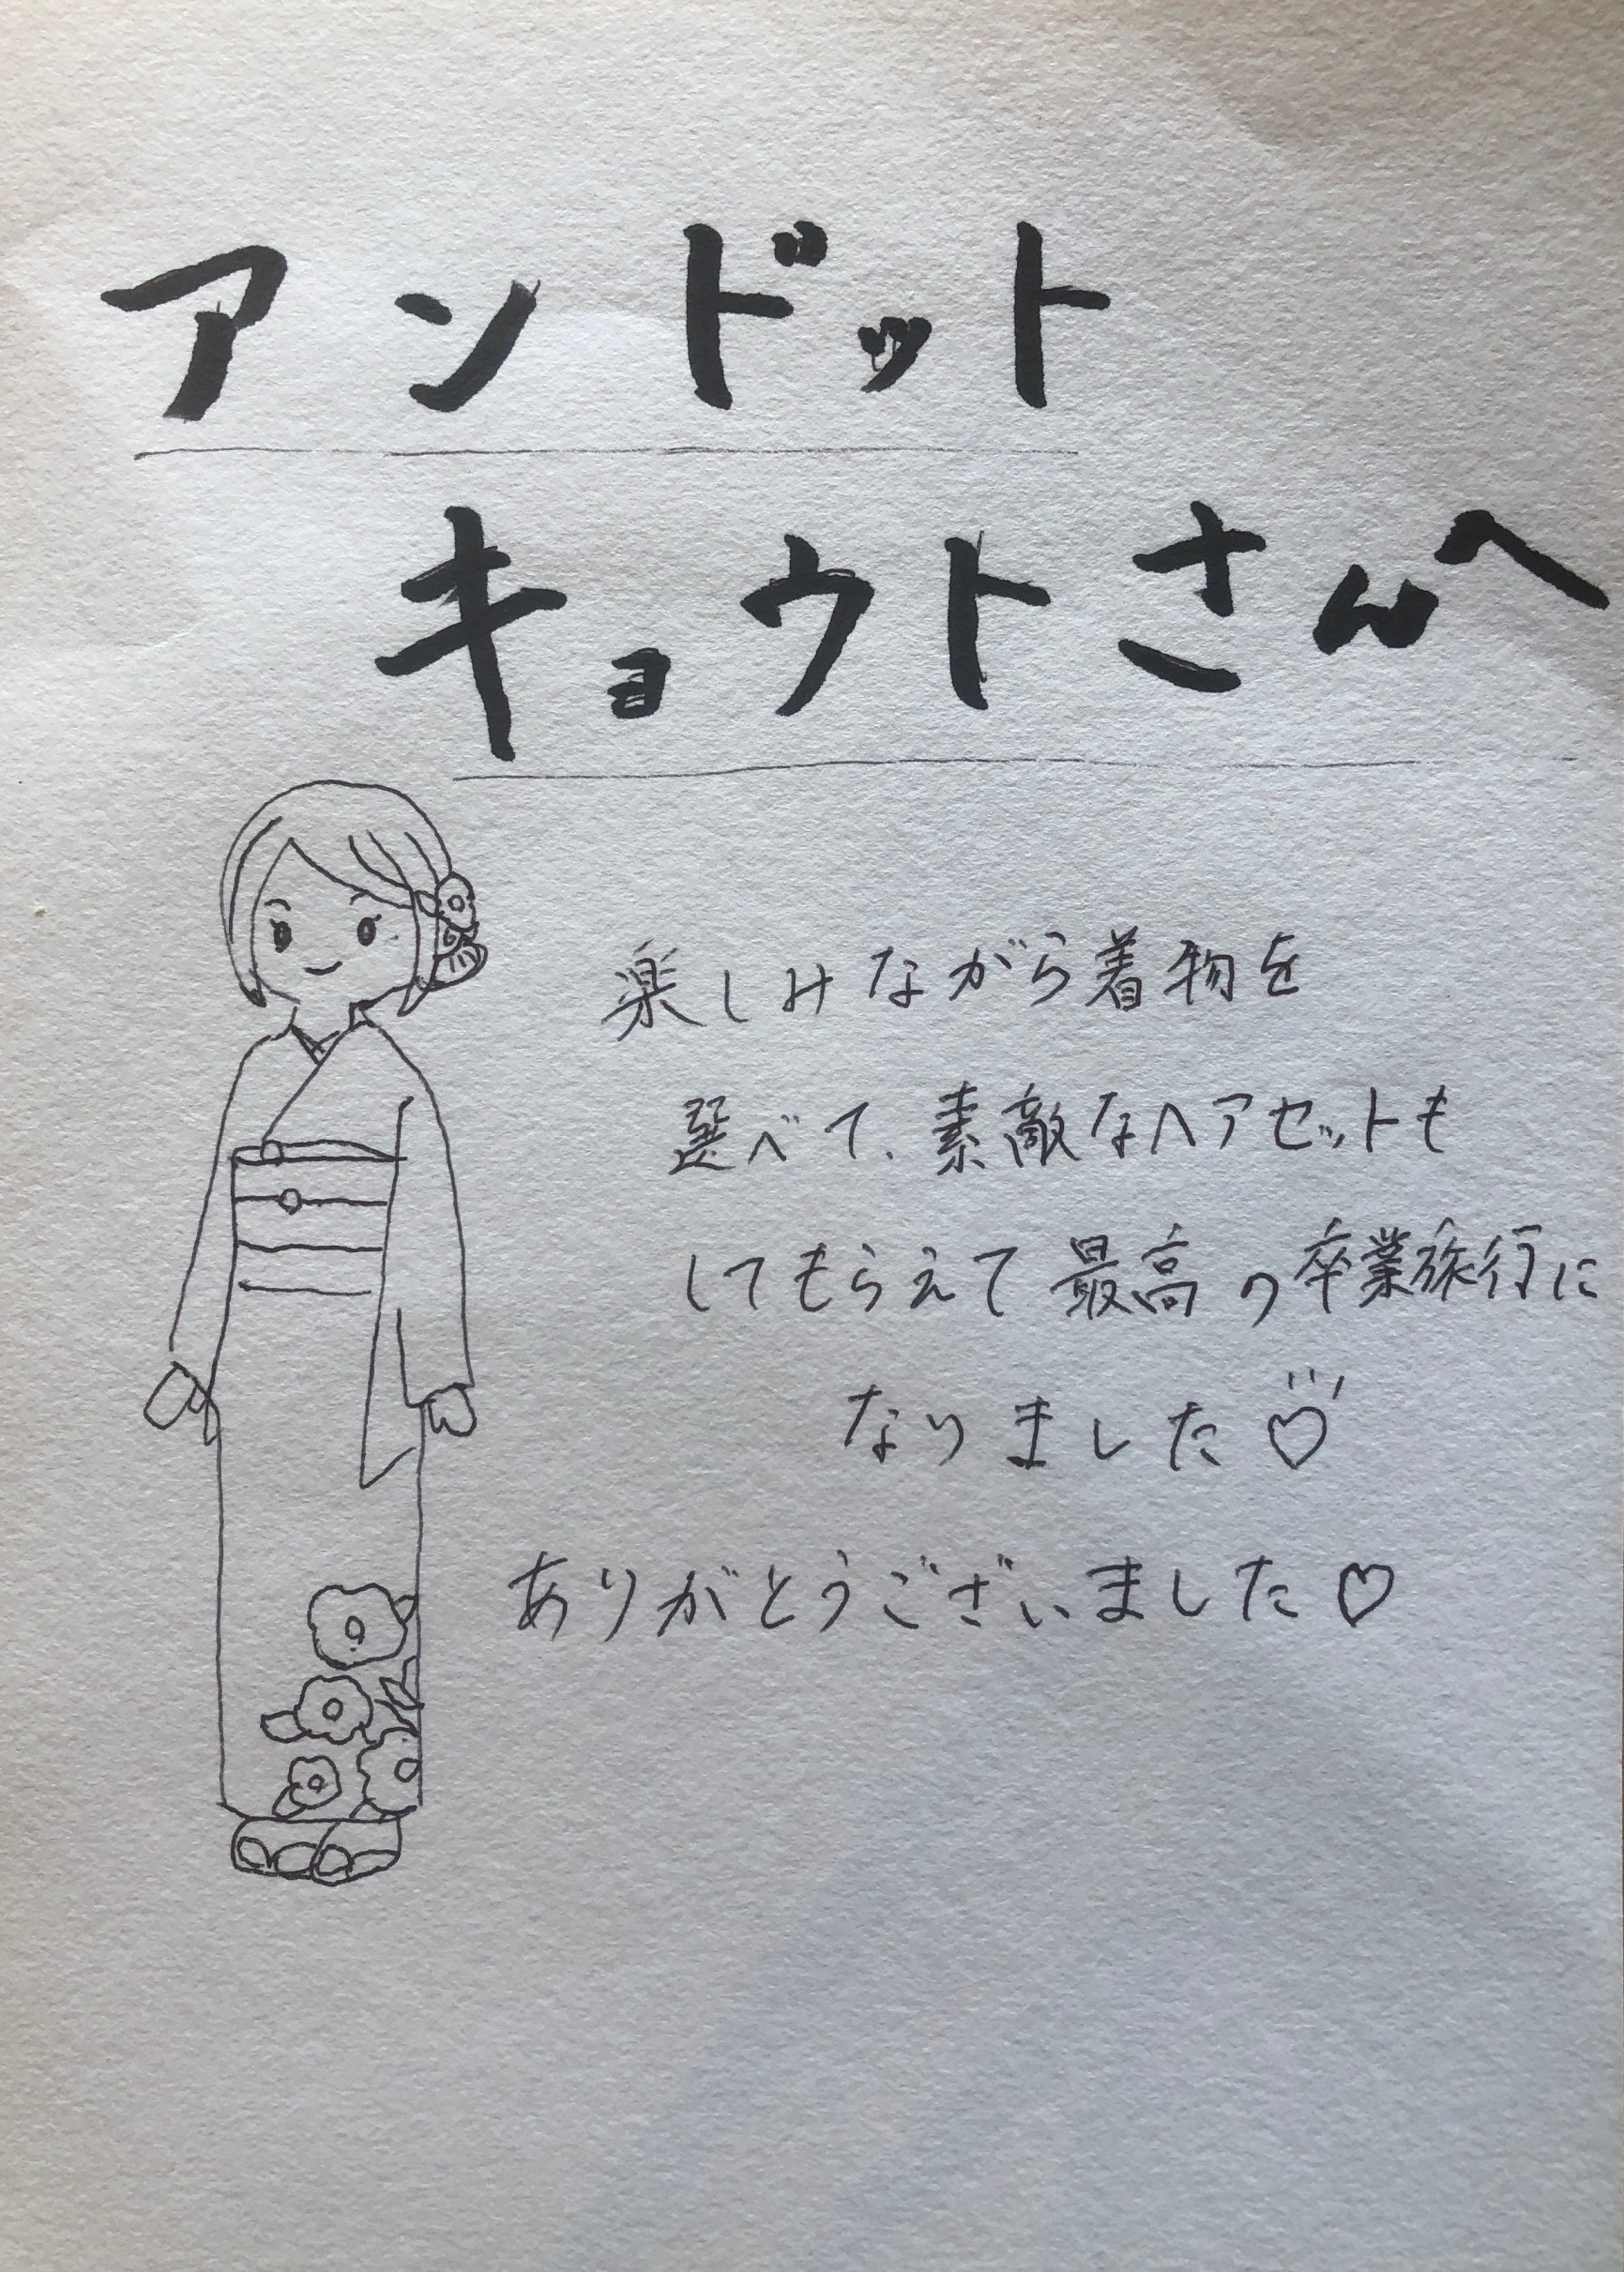 アンドット
キョウトさんへ
楽しみながら着物を
選べて、素敵なヘアセットも
してもらえて最高の卒業旅行に
なりました♡
ありがとうございました♡